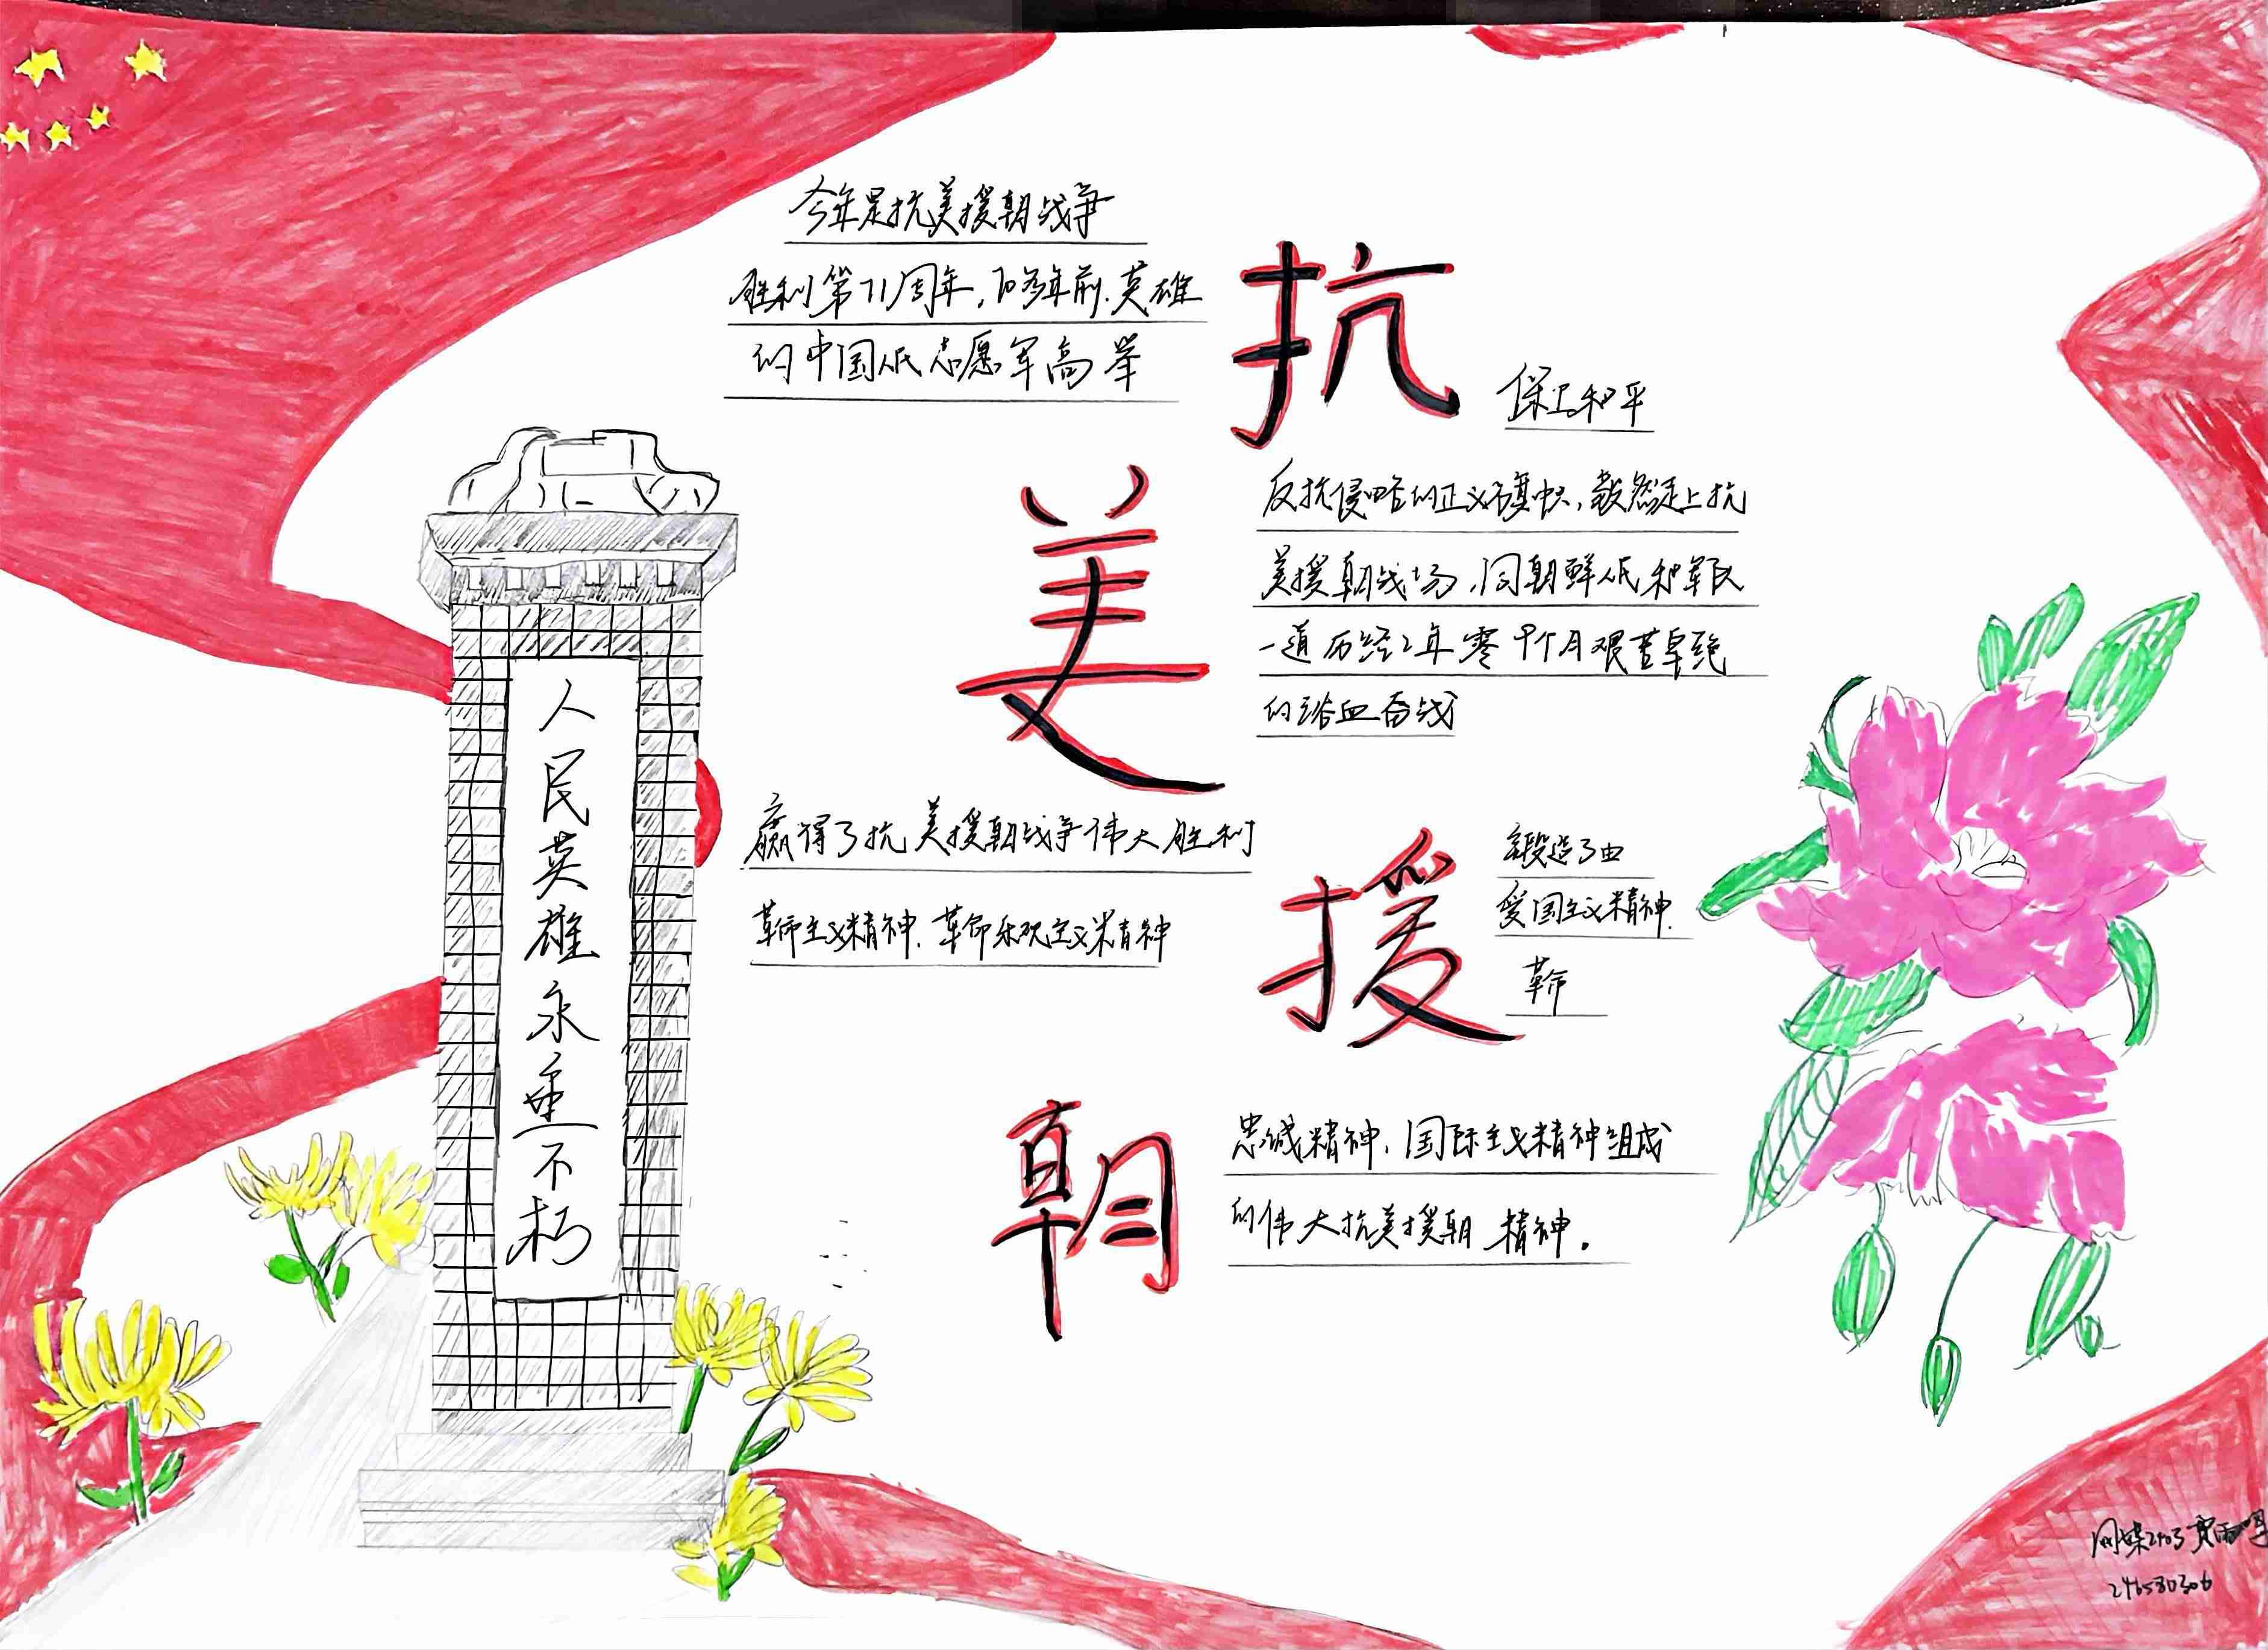 今年是抗美援朝战争
胜利第71周年，70多年前，英雄
的中国人民志愿军高举
抗
保卫和平
美
反抗侵略的正义旗帜，毅然走上抗
美援朝战场，同朝鲜人民和军队
一道历经2年零9个月艰苦卓绝
的浴血奋战
赢得了抗美援朝战争伟大胜利
援
锻造了由
爱国主义精神、
革命
革命主义精神、革命乐观主义精神
朝
忠诚精神、国际主义精神组成
的伟大抗美援朝精神。
人民英雄永垂不朽
网媒2403
246580306